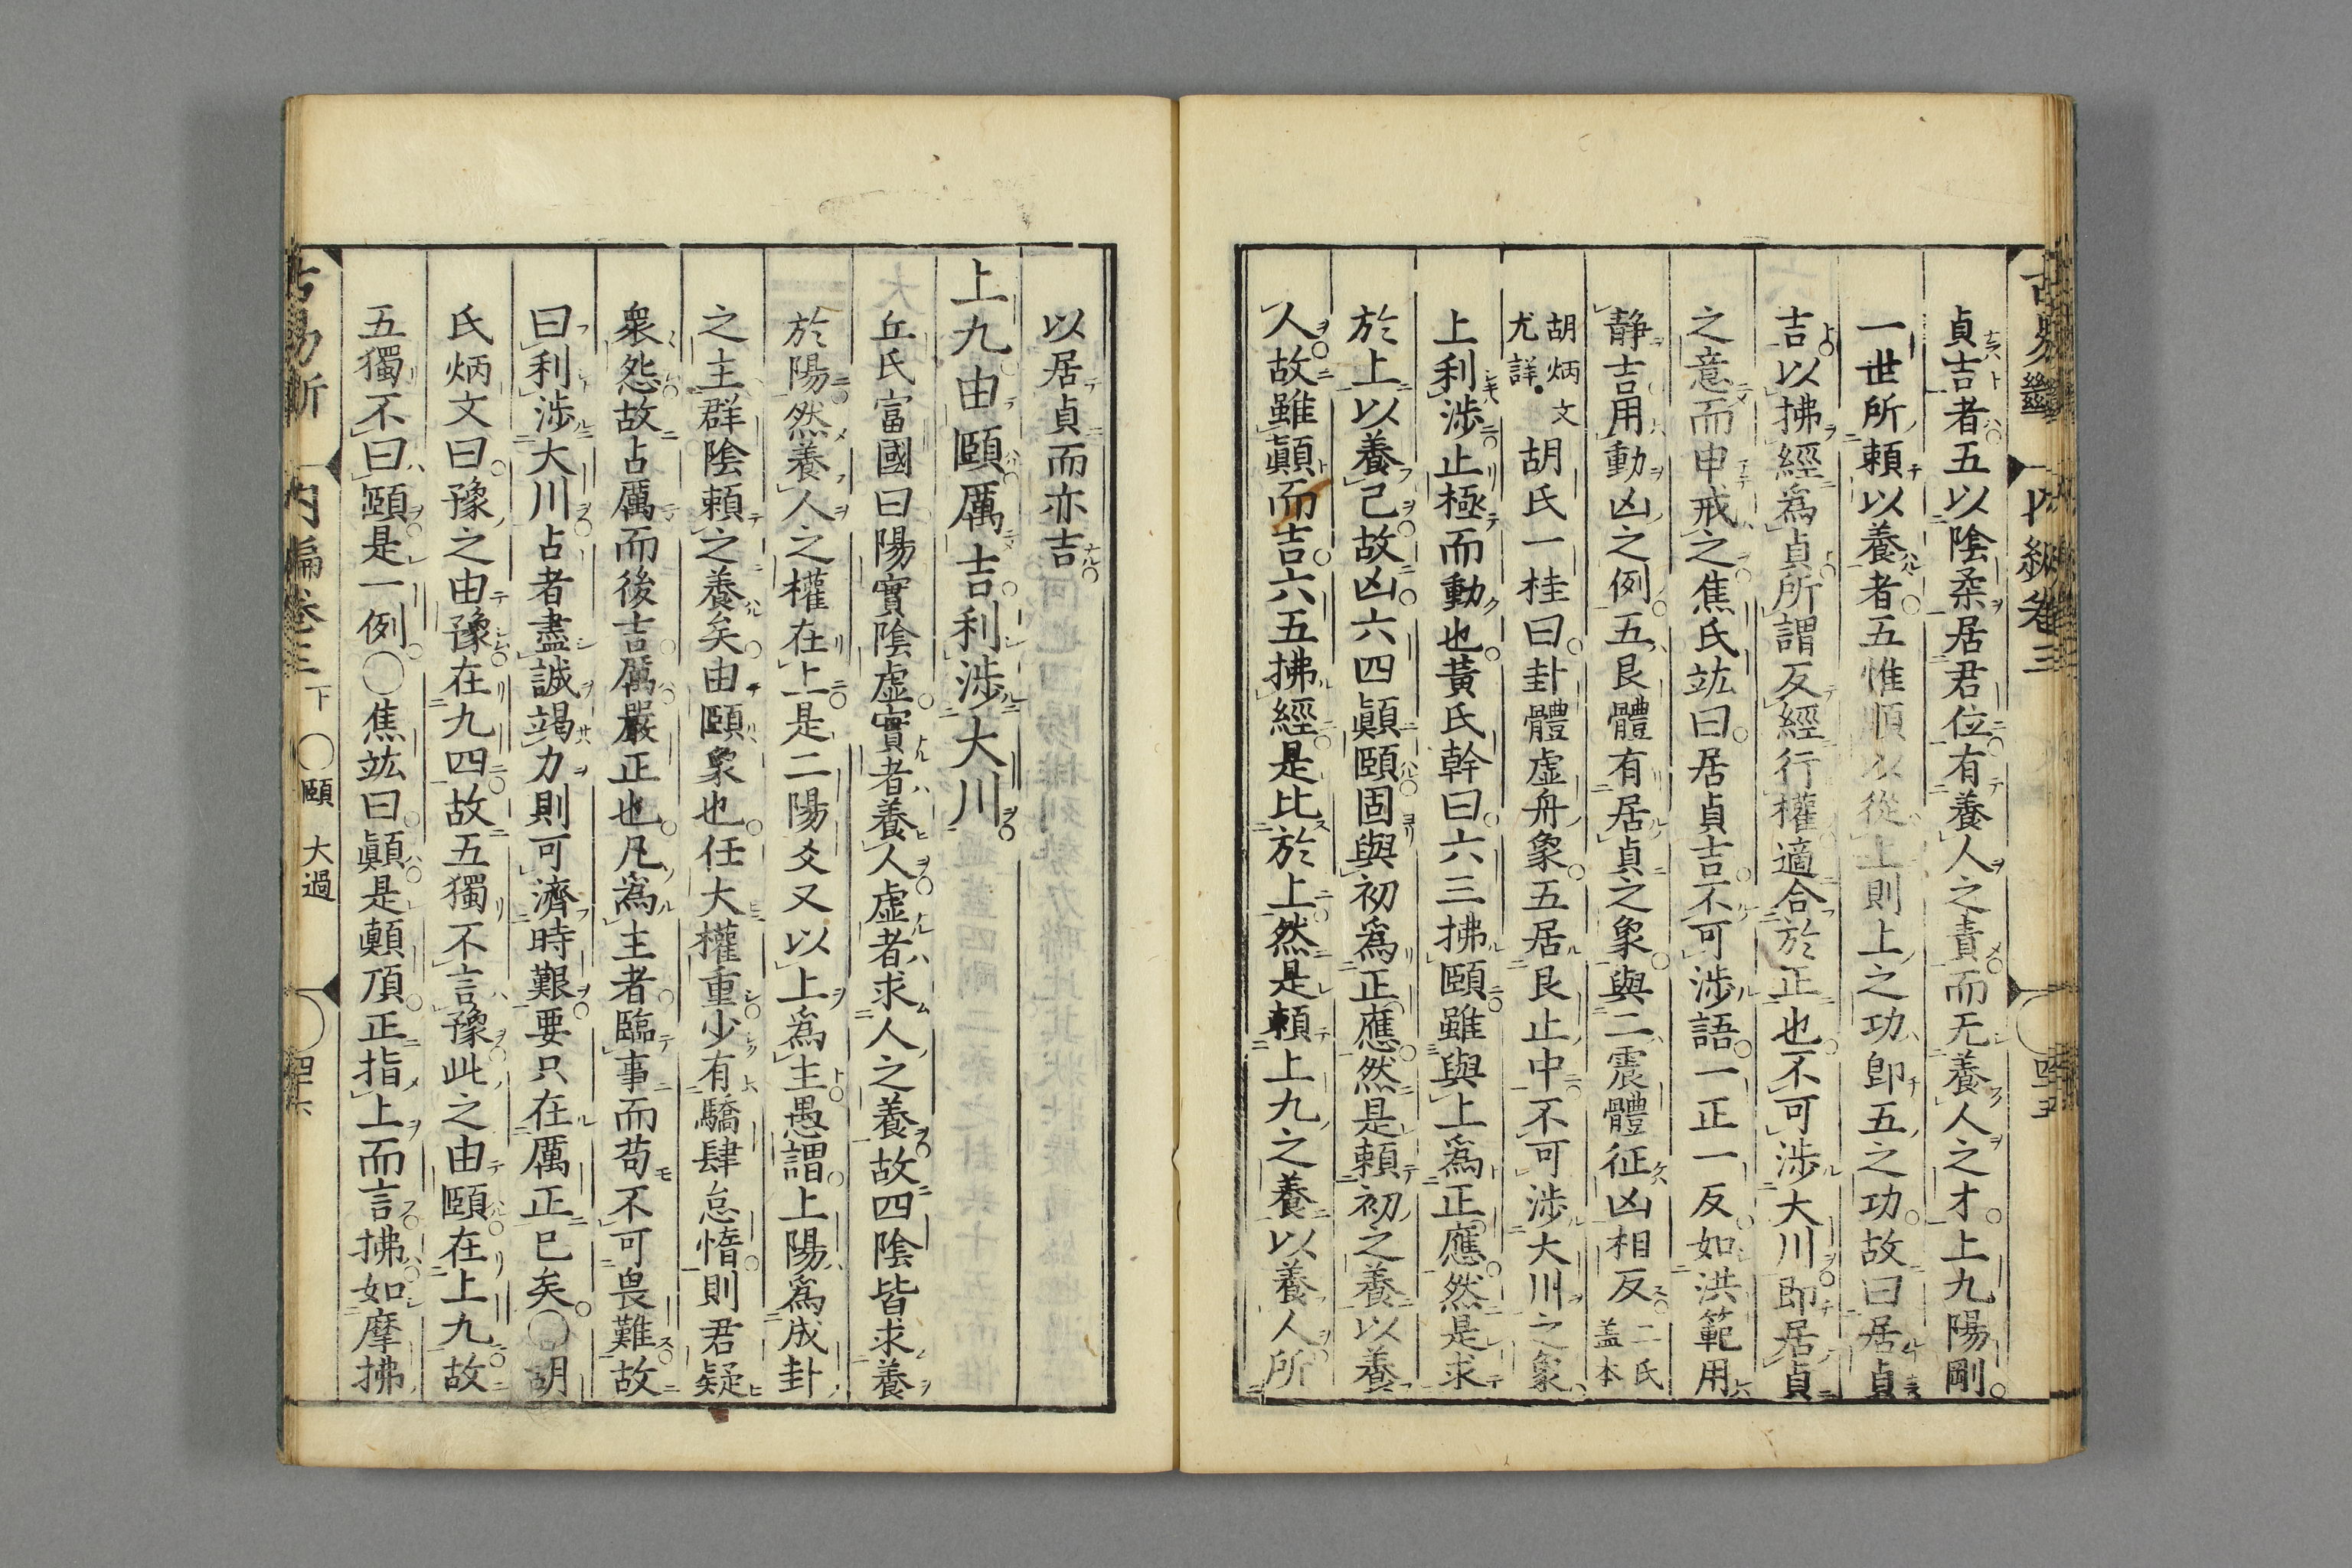 貞吉者五以陰柔居君位有養人之責而无養人之才上九陽剛
一世所頼以養者五惟順以從上則上之功卽五之功故曰居貞
吉以拂經為貞所謂反經行權適合於正也不可涉大川即居貞
之意而申戒之焦氏竑曰居貞吉不可涉語一正一反如洪範用
静吉用動凶之例五艮體有居貞之象與二震體征凶相反二氏盖本
胡炳文尤詳胡氏一桂曰卦體虛舟象五居艮止中不可涉大川之象
上利涉止極而動也黃氏幹曰六三拂頤雖與上爲正應然是求
於上以養己故凶六四顚頤固與初爲正應然是頼初之養以養
人故雖顚而吉六五拂經是比於上然是頼上九之養以養人所
以居貞而亦吉
上九由頤厲吉利涉大川
丘氏富國曰陽實陰虛實者養人虛者求人之養故四陰皆求養
於陽然養人之權在上是二陽爻又以上爲主愚謂上陽爲成卦
之主群陰頼之養矣由頤象也任大權重少有驕肆怠惰則君疑
衆怨故占厲而後吉厲嚴正也凡為主者臨事而苟不可畏難故
曰利涉大川占者盡誠竭力則可濟時艱要只在厲正已矣〇胡
氏炳文曰豫之由豫在九四故五獨不言豫此之由頤在上九故
五獨不曰頤是一例〇焦竑曰顚是顚頂正指上而言拂如摩拂
古易斷 内編卷三下 〇頤 大過 四十六